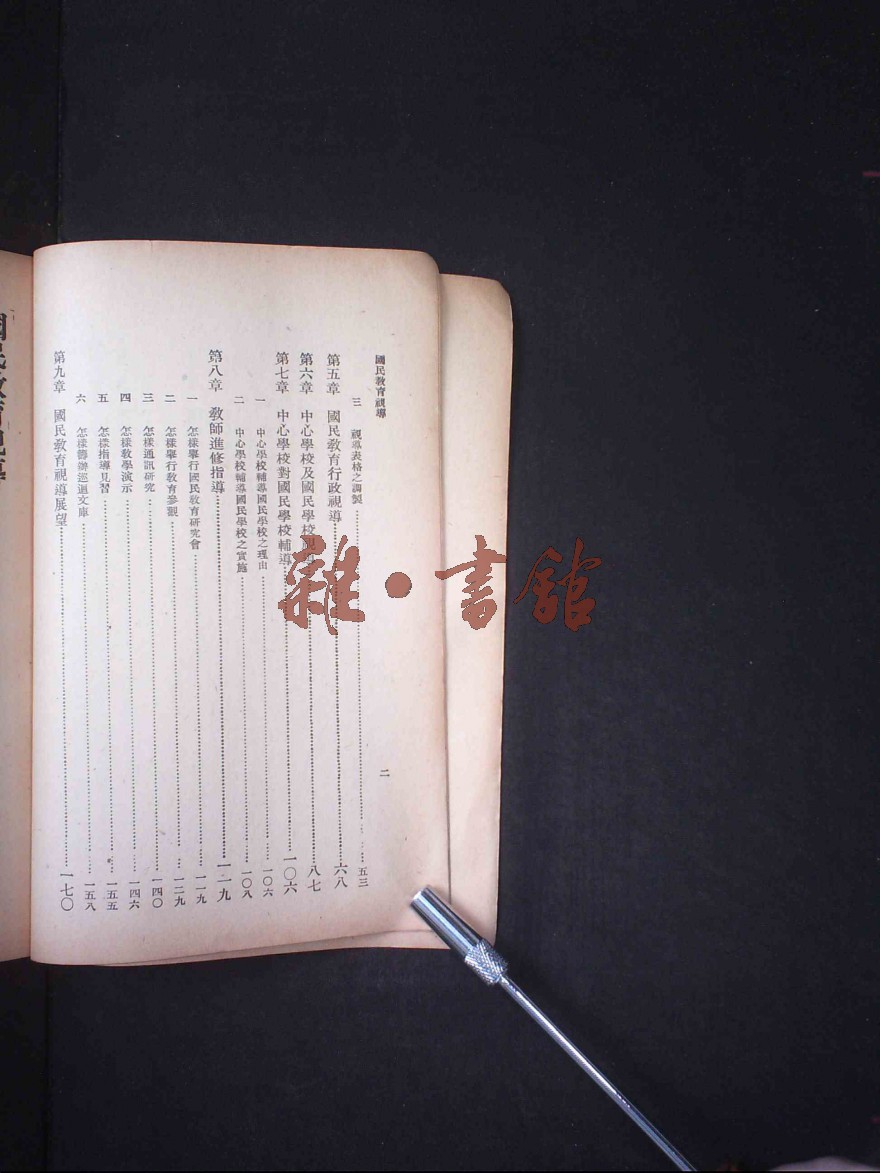 國民教育視導
二
三 視導表格之調製……五三
第五章 國民教育行政視導……六八
第六章 中心學校及國民學校視導……八七
第七章 中心學校對國民學校輔導……一〇六
一 中心學校輔導國民學校之理由……一〇六
二 中心學校輔導國民學校之實施……一〇八
第八章 教師進修指導……一一九
一 怎樣舉行國民教育研究會……一一九
二 怎樣舉行教育參觀……一二九
三 怎樣通訊研究……一四〇
四 怎樣教學演示……一四六
五 怎樣指導見習……一五五
六 怎樣籌辦巡迴文庫……一五八
第九章 國民教育視導展望……一七〇
國民教育視導
雜·書館